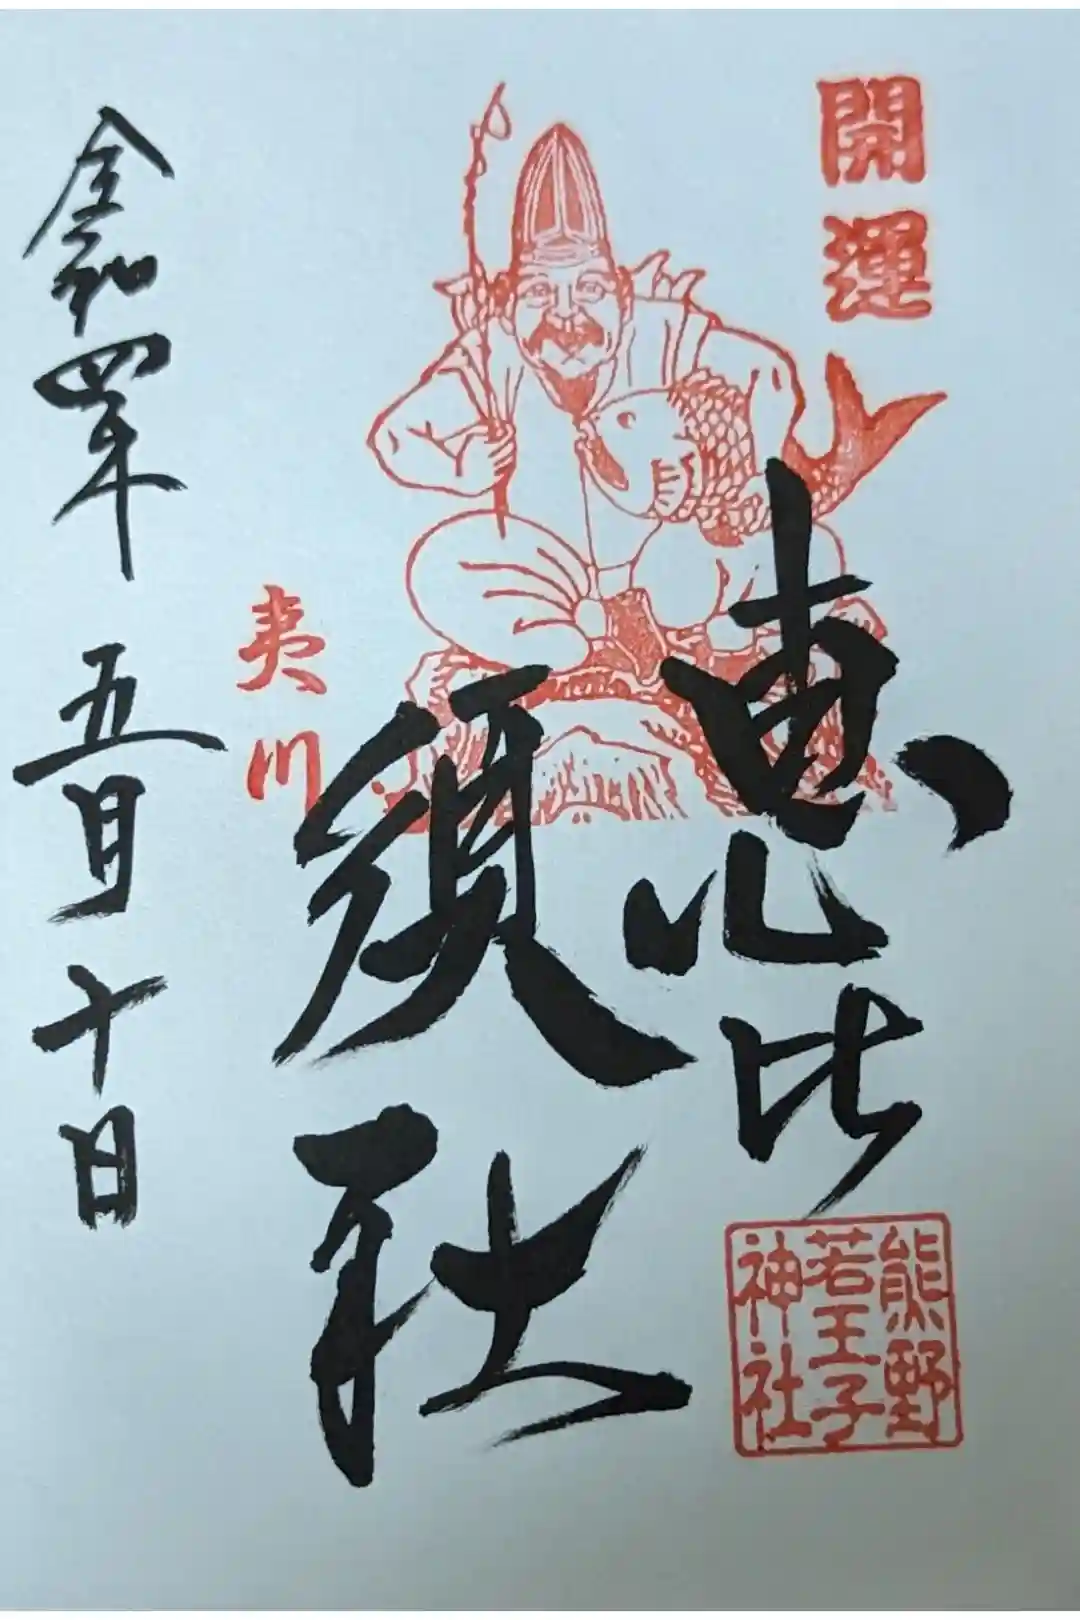 開運
恵比
須社
夷川
令和四年 五月 十日
熊野
若王子
神社